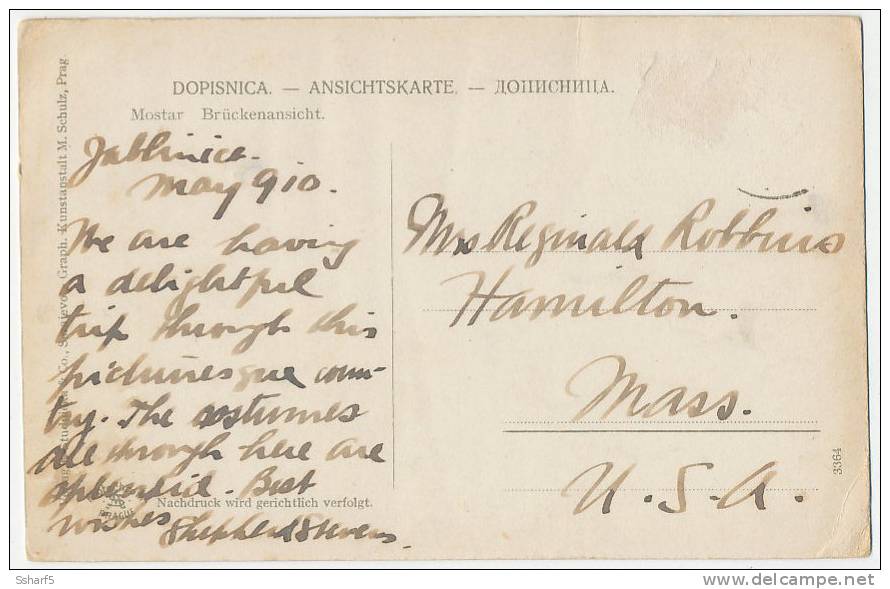 DOPISNICA. — ANSICHTSKARTE. — ДОПИСНИЦА.
Mostar Brückenansicht.
Jablinica.
May 9 10.
We are having
a delightful
trip through this
picturesque coun-
try. The costumes
all through here are
splendid. Best
wishes Shepherd Stevens.
Mrs Reginald Robbins
Hamilton.
Mass.
U.S.A.
Nachdruck wird gerichtlich verfolgt.
Co., Sarajevo. Graph. Kunstanstalt M. Schulz, Prag
PRAGUE
3364
Ssharf5
© delcampe.net